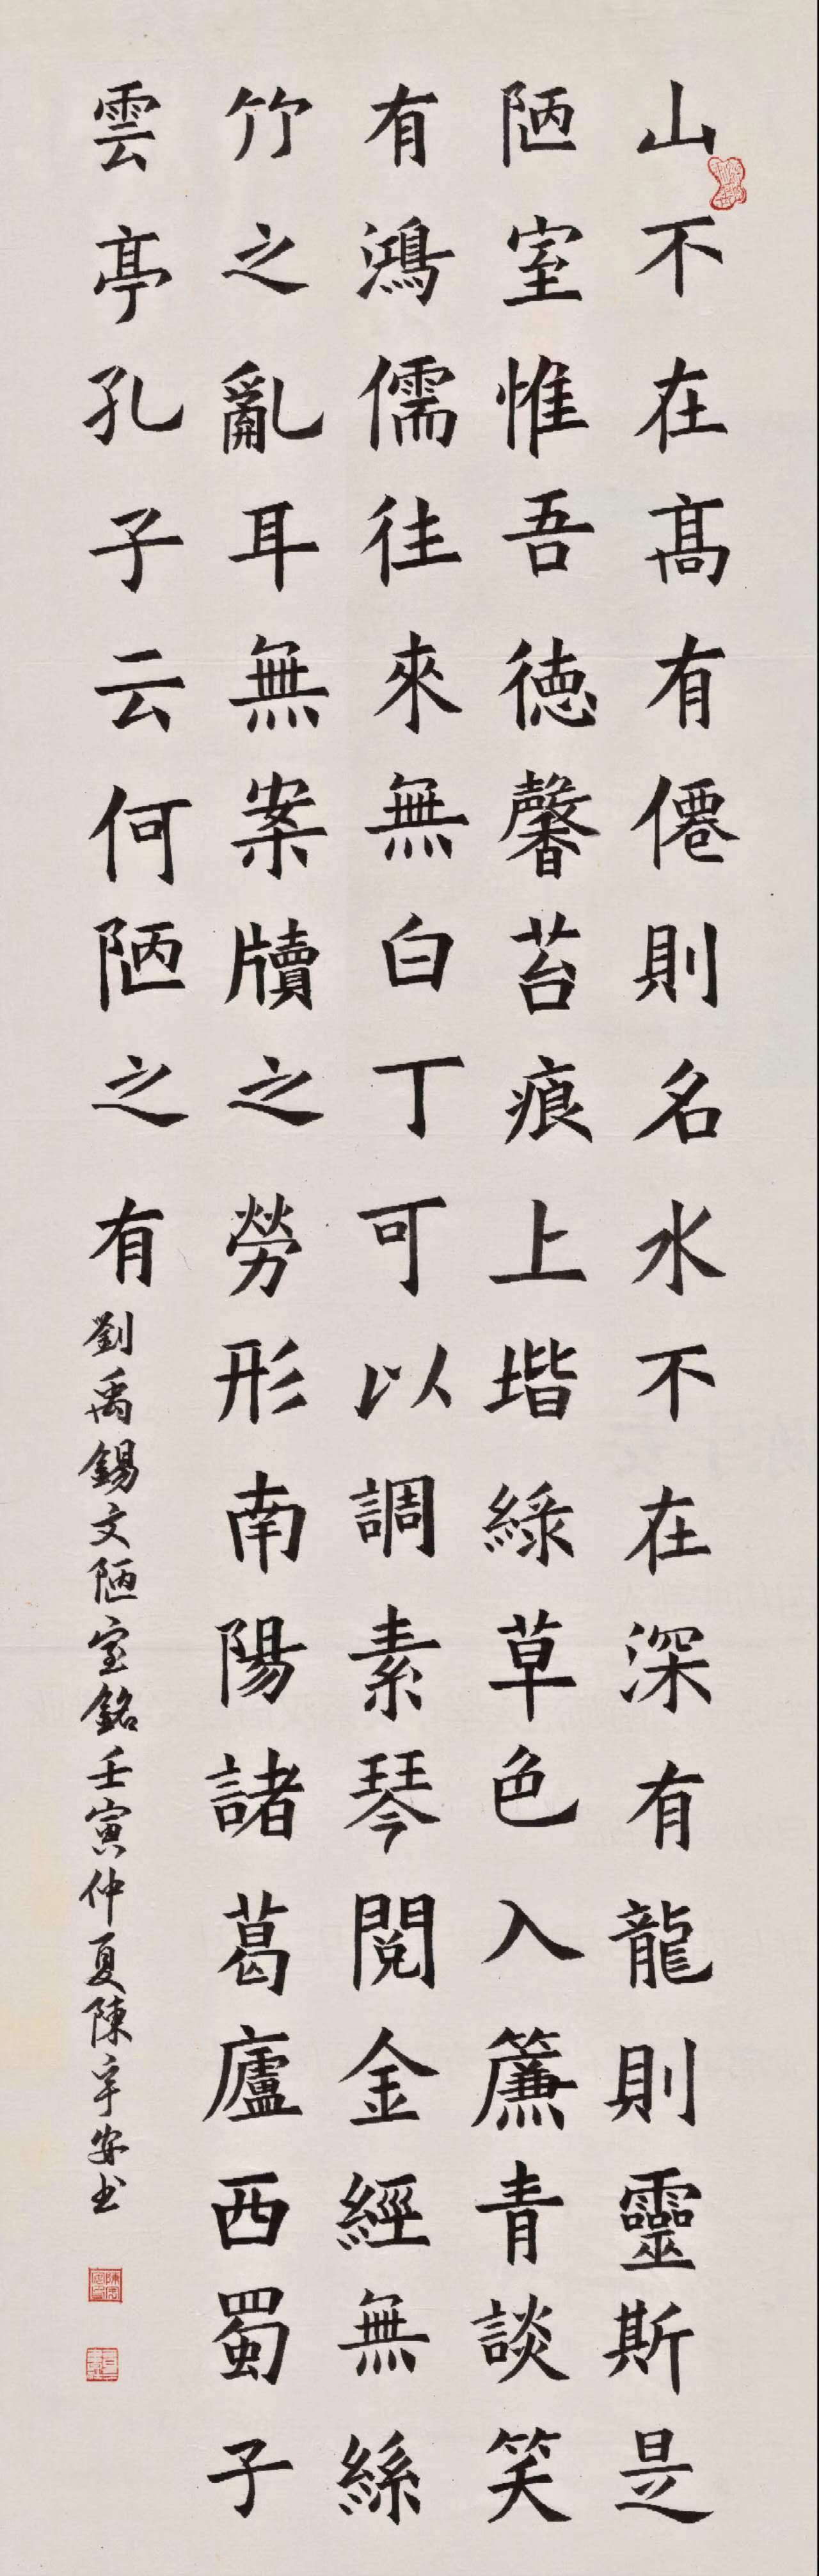 山不在髙有僊則名水不在深有龍則靈斯是
陋室惟吾徳馨苔痕上堦綠草色入簾青談笑
有鴻儒往來無白丁可以調素琴閱金經無絲
竹之亂耳無案牘之勞形南陽諸葛廬西蜀子
雲亭孔子云何陋之有劉禹錫文陋室銘壬寅仲夏陳宇安书